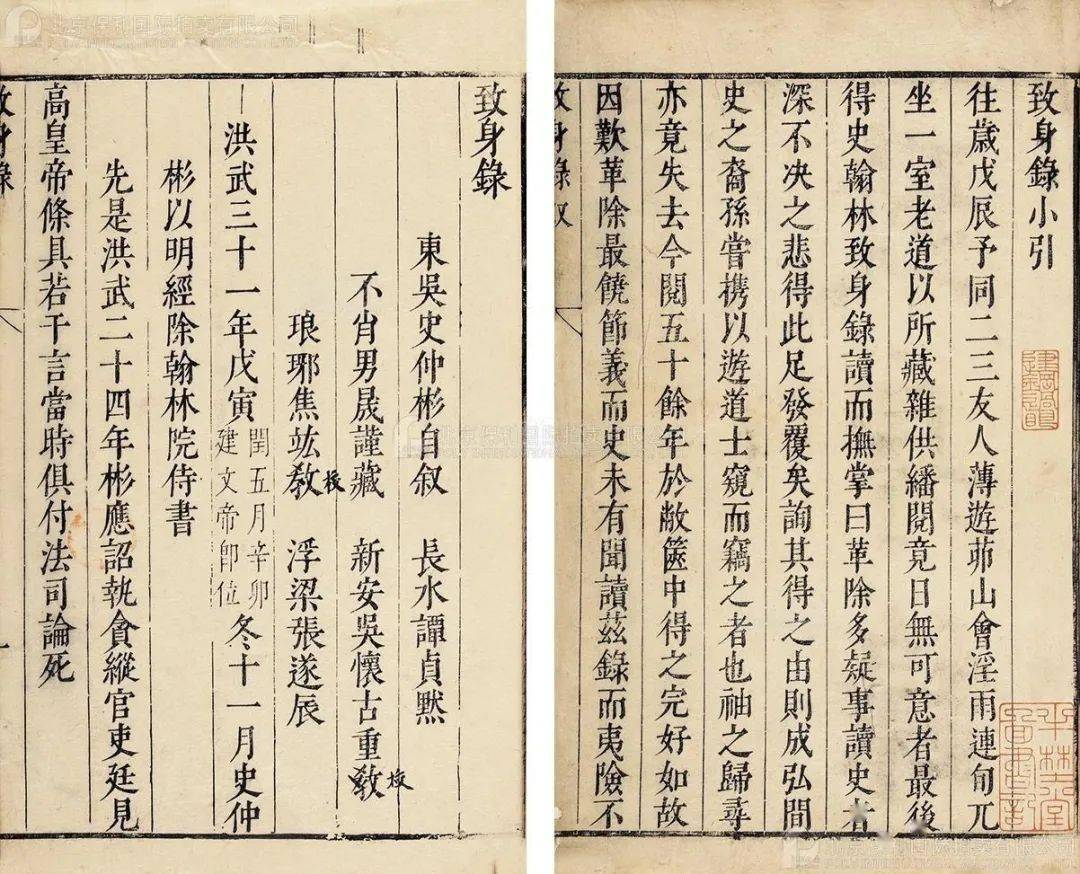 致身錄小引
往歲戊辰予同二三友人薄遊茆山會淫雨連旬兀
坐一室老道以所藏雜供繙閱竟日無可意者最後
得史翰林致身錄讀而撫掌曰革除多疑事讀史者
深不决之悲得此足發覆矣詢其得之由則成弘間
史之裔孫嘗携以遊道士窺而竊之者也袖之歸尋
亦竟失去今閱五十餘年於敝篋中得之完好如故
因歎革除最饒節義而史未有聞讀茲錄而夷險不
致身錄叙
致身錄
東吳史仲彬自叙 長水譚貞黙
不肖男晟謹藏 新安吳懷古重敎 校
琅耶焦竑敎 校 浮梁張遂辰
洪武三十一年戊寅 閏五月辛卯建文帝卽位 冬十一月史仲
彬以明經除翰林院侍書
先是洪武二十四年彬應詔執貪縱官吏廷見
高皇帝條具若干言當時俱付法司論死
致身錄
一
北京保利国际拍卖有限公司